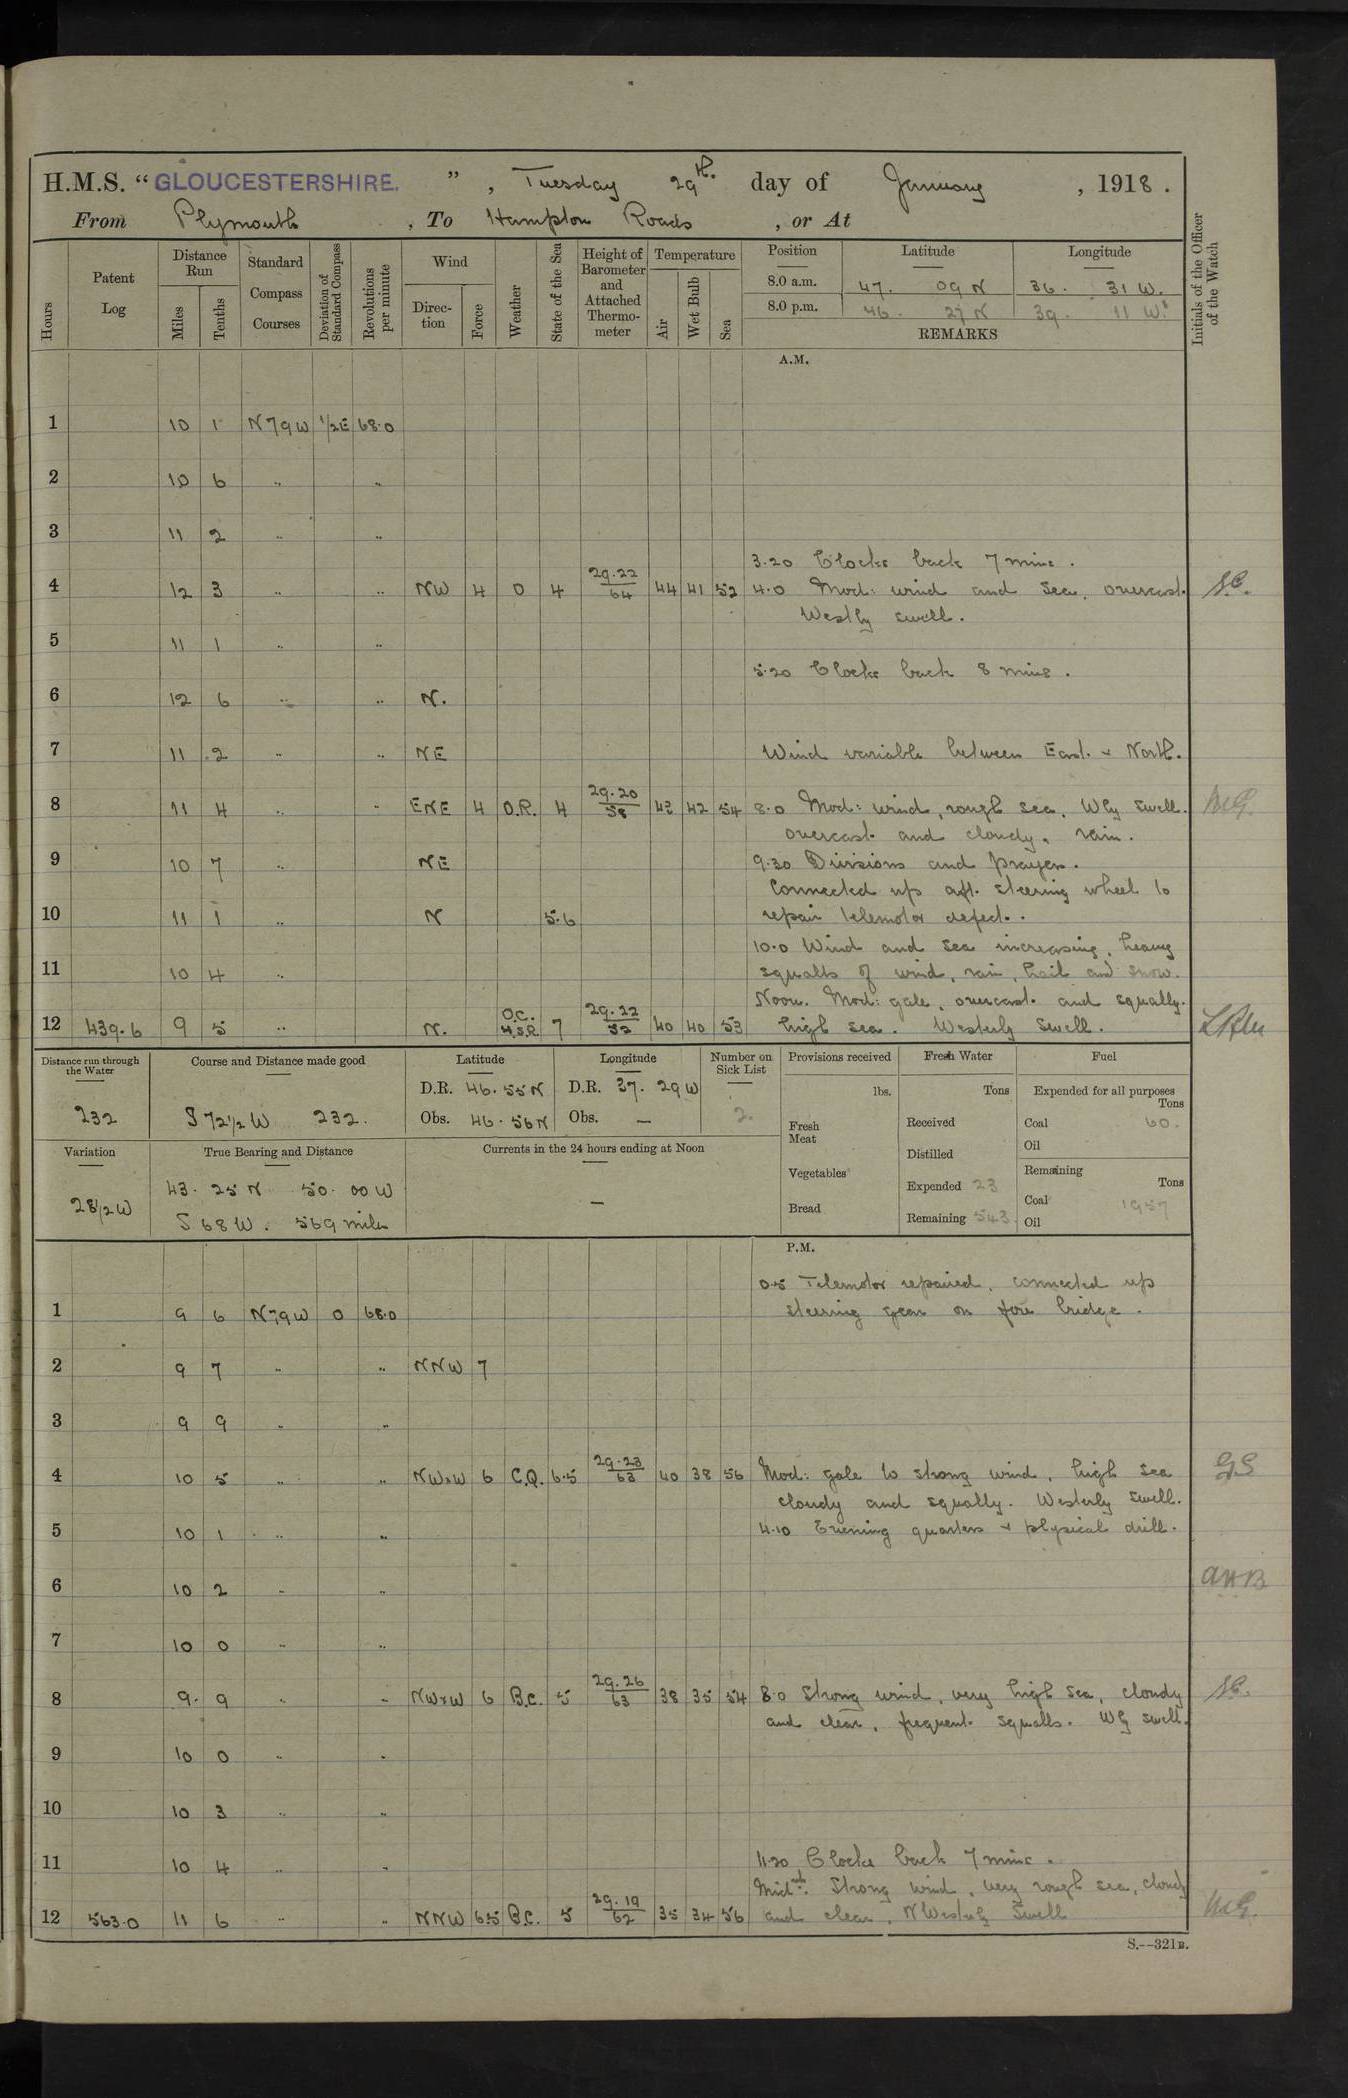 H.M.S. “ GLOUCESTERSHIRE. ” , Tuesday 29th. day of January , 1918 .
From Plymouth , To Hampton Roads , or At
Hours
Patent Log
Distance Run
Miles Tenths
Standard Compass Courses
Deviation of Standard Compass
Revolutions per minute
Wind
Direc-tion Force
Weather
State of the Sea
Height of Barometer and Attached Thermo-meter
Temperature
Air Wet Bulb Sea
Position Latitude Longitude
8.0 a.m. 47. 09 N 36. 31 W.
8.0 p.m. 46. 27 N 39. 11 W.
REMARKS
Initials of the Officer of the Watch
A.M.
1 10 1 N79W 1/2E 68.0
2 10 6 .. ..
3 11 2 .. ..
3.20 Clocks back 7 mins .
4 12 3 .. .. NW 4 O 4 29.22/64 44 41 52 4.0 Mod: wind and sea, overcast.
Westly swell.
5 11 1 .. ..
5.20 Clocks back 8 mins .
6 12 6 .. .. N.
7 11 2 .. .. NE Wind variable between East. + North.
8 11 4 .. .. ENE 4 O.R. 4 29.20/58 43 42 54 8.0 Mod: wind, rough sea, Wly swell.
overcast and cloudy, rain.
9 10 7 .. NE 9.30 Divisions and prayers.
Connected up aft. steering wheel to
10 11 1 .. N 5.6 repair telemotor defect.
10.0 Wind and sea increasing, heavy
11 10 4 .. squalls of wind, rain, hail and snow.
Noon. Mod: gale, overcast and squally.
12 439.6 9 5 .. N. O.C. H.S.R. 7 29.22/52 40 40 53 high sea. Westerly Swell.
Distance run through the Water
232
Course and Distance made good
S 72 1/2 W 232.
Latitude
D.R. 46.55 N
Obs. 46.56 N
Longitude
D.R. 37. 29 W
Obs. —
Number on Sick List
2.
Provisions received
lbs.
Fresh Meat
Vegetables
Bread
Fresh Water
Tons
Received
Distilled
Expended 23
Remaining 543.
Fuel
Expended for all purposes
Tons
Coal 60.
Oil
Remaining
Tons
Coal 1957
Oil
Variation
28 1/2 W
True Bearing and Distance
43. 25 N 50. 00 W
S 68 W. 569 miles
Currents in the 24 hours ending at Noon
—
P.M.
0.5 Telemotor repaired, connected up
1 9 6 N79W 0 68.0 steering gear on fore bridge .
2 9 7 .. .. NNW 7
3 9 9 .. ..
4 10 5 .. .. NWxW 6 C.Q. 6.5 29.23/63 40 38 56 Mod: gale to strong wind, high sea GS
cloudy and squally. Westerly swell.
5 10 1 .. .. 4.10 Evening quarters + physical drill.
6 10 2 .. .. AHB
7 10 0 .. ..
8 9. 9 .. .. NWxW 6 B.C. 5 29.26/63 38 35 54 8.0 Strong wind, very high sea, cloudy
and clear, frequent squalls. Wly swell.
9 10 0 .. ..
10 10 3 .. ..
11 10 4 .. .. 11.20 Clocks back 7 mins .
Midnt. Strong wind, very rough sea, cloudy
12 563.0 11 6 .. .. NNW 6.5 B.C. 5 29.19/62 35 34 56 and clear, NWesterly Swell
S.--321B.